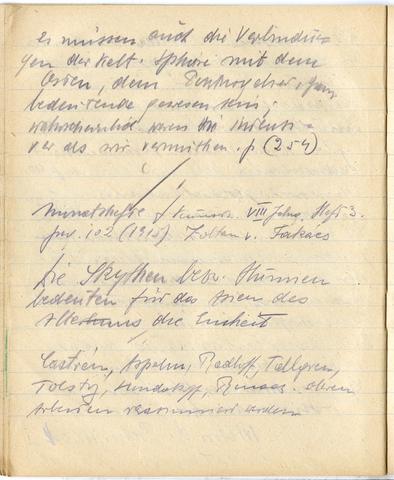 es müssen auch die Verbindun-
gen der Kelt. Sphäre mit dem
Osten, dem ganz
bedeutende gewesen sein,
wahrscheinlich waren sie intensi-
ver als wir vermuthen. p (254)
Monatshefte f Kunstw. VIII Jahrg. Heft 3.
pag. 102 (1915) Zoltan v. Takács
Die Skythen bezw. Hunnen
bedeuten für das Asien des
Altertums die Einheit
Castrén, Aspelin, Radloff, Tallgren,
Tolstoj, Kondakoff, deren
Arbeiten resumiert werden